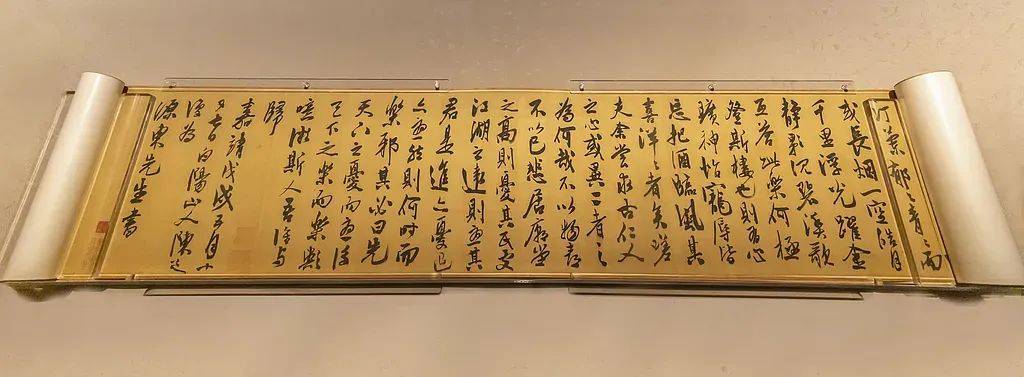 汀蘭郁々青々而
或長烟一空皓月
千里浮光躍金
静影沉碧漁歌
互答此樂何極
登斯樓也則有心
曠神怡寵辱皆
忘把酒臨風其
喜洋々者矣嗟
夫余嘗求古仁人
之心或異二者之
為何哉不以物喜
不以己悲居廟堂
之高則憂其民處
江湖之遠則憂其
君是進亦憂退
亦憂然則何時而
樂邪其必曰先
天下之憂而憂後
天下之樂而樂歟
噫微斯人吾誰與
歸
嘉靖戊戌五月
日白陽山人陳道
復為
源東先生書